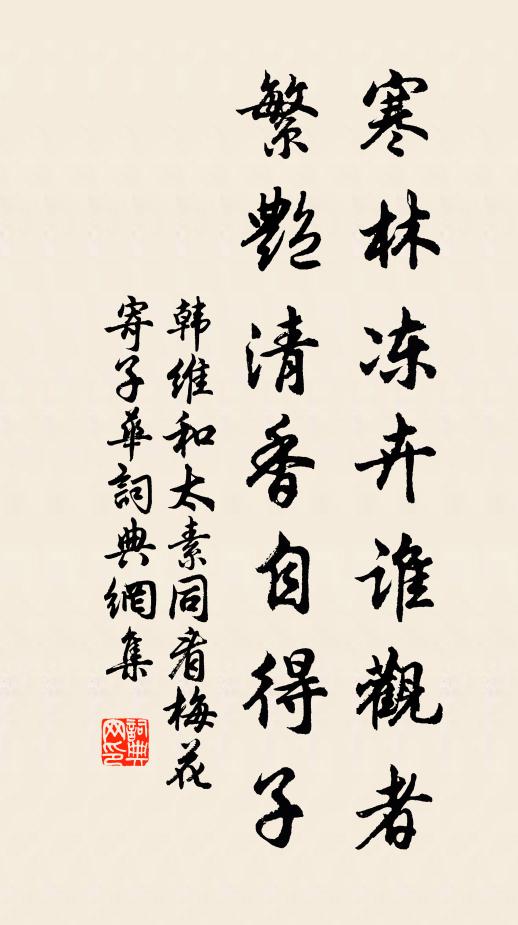 寒林冻卉谁觀者
繁艶清香自得子
韩维和太素同看梅花
寄子華詞典網集
詞典
网印